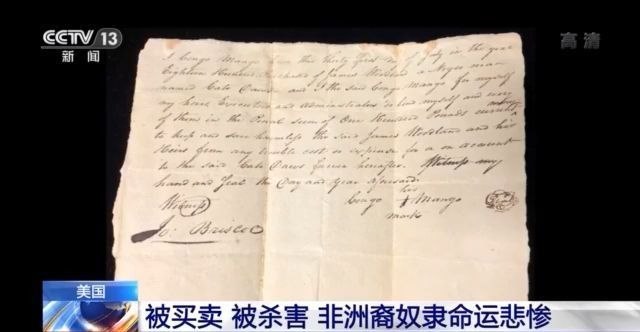 CCTV 13
新闻
高清
I Congo Mango on the thirty first day of July in the year
Eighteen Hundred Purchased of James Woodland a Negro man
named Cato Caius and I the said Congo Mango for myself
my heirs Executors and Administrators do bind myself and every
of them in the Penal sum of One Hundred Pounds current money
to keep and save harmless the said James Woodland and his
Heirs from any trouble cost or expense for or on account
to the said Cato Caius forever hereafter. Witness my
hand and Seal the Day and Year aforesaid
his
Witness
Congo + Mango
mark
Jo: Briscoe
美国
被买卖 被杀害 非洲裔奴隶命运悲惨